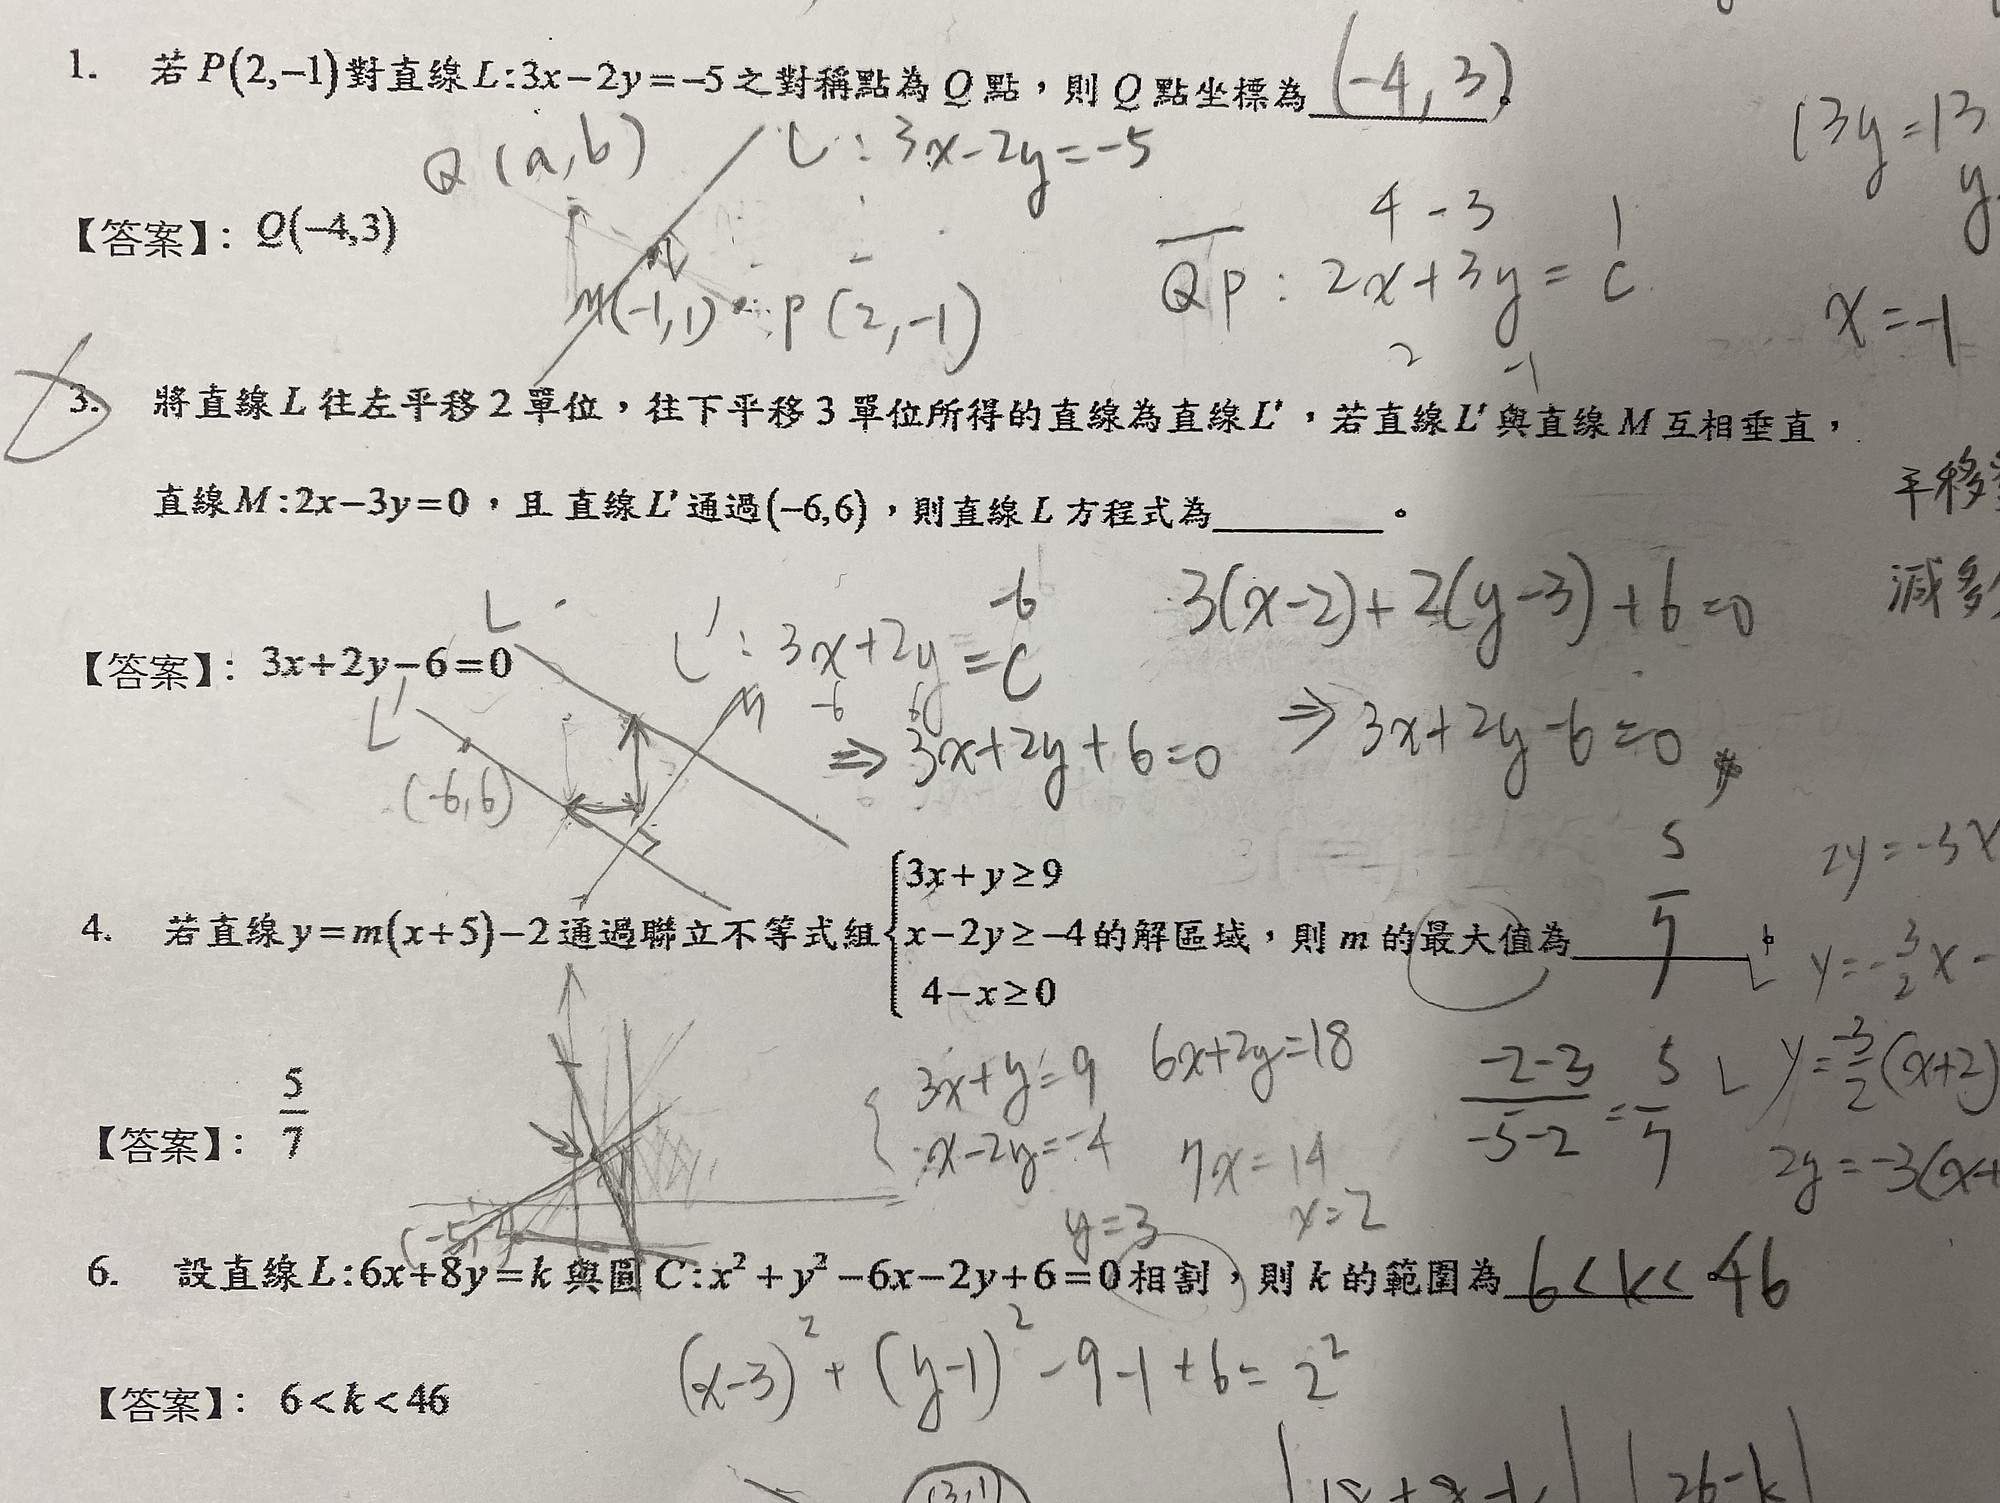 1. 若P(2,−1)對直線L:3x−2y=−5之對稱點為Q點，則Q點坐標為 (-4, 3)。
Q (a, b)
L : 3x-2y=-5
13y=13
y
【答案】: Q(−4,3)
M(-1,1)
P(2,-1)
4 - 3 1
QP : 2x+3y= C
2 -1
x=-1
3. 將直線L往左平移2單位，往下平移3單位所得的直線為直線L'，若直線L'與直線M互相垂直，
直線M:2x−3y=0，且 直線L'通過(−6,6)，則直線L方程式為 。
平移
減多
【答案】: 3x+2y−6=0
L
L' : 3x+2y = C
-6
-6 6
3(x-2)+2(y-3)+6=0
L'
M
(-6,6)
⇒ 3x+2y+6=0
⇒ 3x+2y-6=0
4. 若直線y=m(x+5)−2通過聯立不等式組{3x+y≥9
x−2y≥−4的解區域，則m的最大值為 5/7
4−x≥0
2y=-3x
L y=-3/2x-
【答案】: 5/7
{3x+y=9
x-2y=-4
6x+2y=18
7x=14
x=2
y=3
-2-3/-5-2 = 5/7
L y=-3/2(x+2)
2y=-3(x+
6. 設直線L:6x+8y=k與圓C:x²+y²−6x−2y+6=0相割，則k的範圍為 6<k<46
【答案】: 6<k<46
(x-3)²+(y-1)²-9-1+6= 2²
(3,1)
|18+8-k| |26-k|